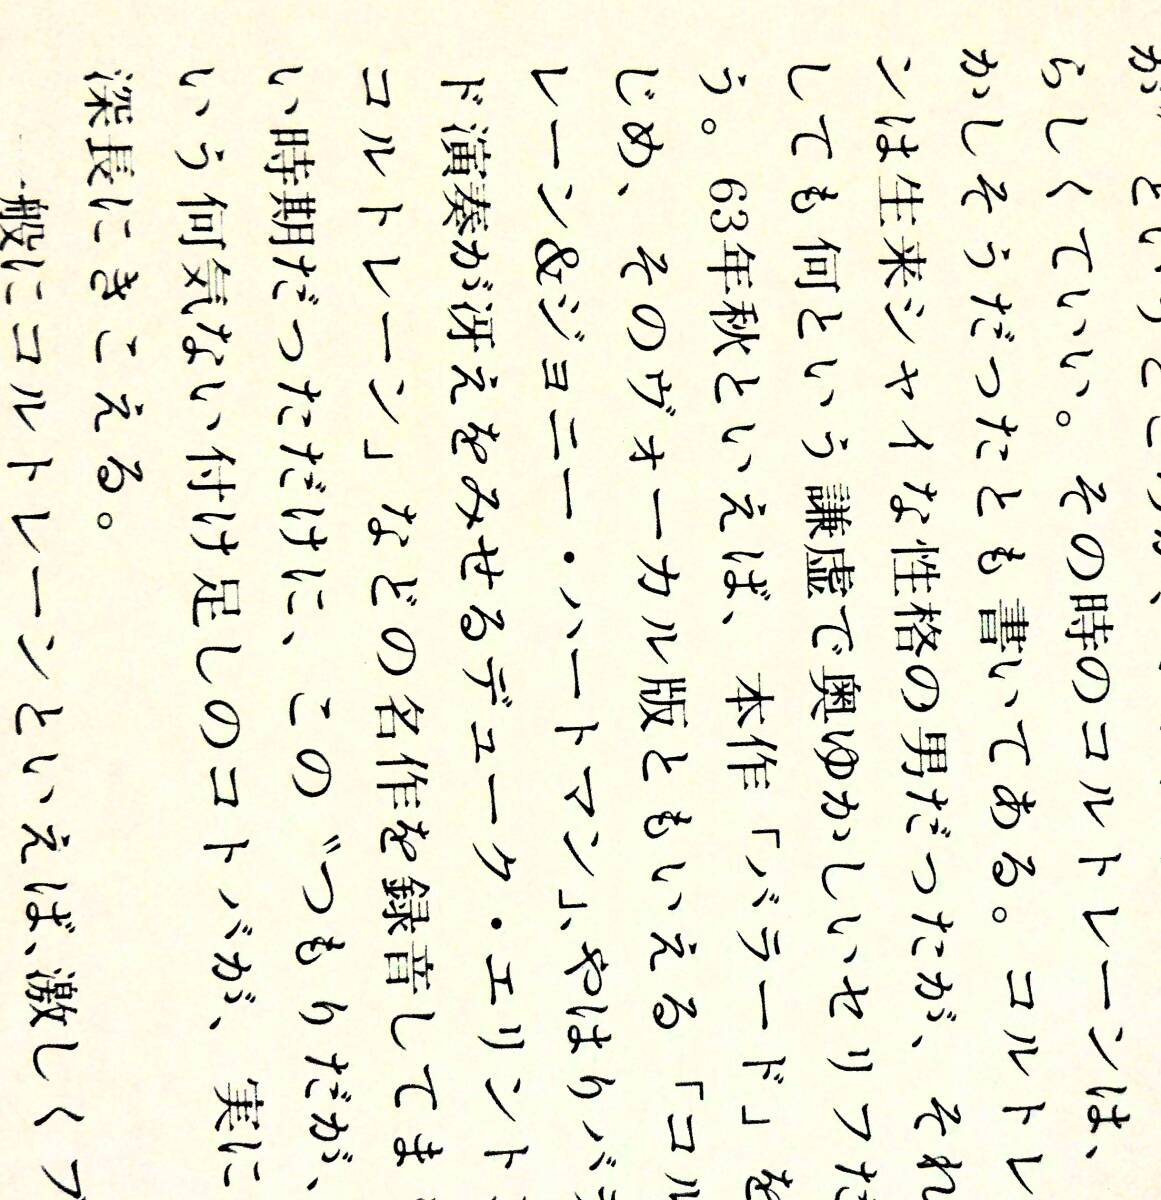 が"というところが、
らしくていい。その時のコルトレーンは、
かしそうだったとも書いてある。コルトレ
ンは生来シャイな性格の男だったが、それ
しても何という謙虚で奥ゆかしいセリフだ
う。63年秋といえば、本作「バラード」を
じめ、そのヴォーカル版ともいえる「コル
レーン&ジョニー・ハートマン」、やはりバラ
ド演奏が冴えをみせるデューク・エリント
コルトレーン」などの名作を録音してま
い時期だっただけに、この〝つもりだが、
いう何気ない付け足しのコトバが、実に
深長にきこえる。
一般にコルトレーンといえば、激しくブ